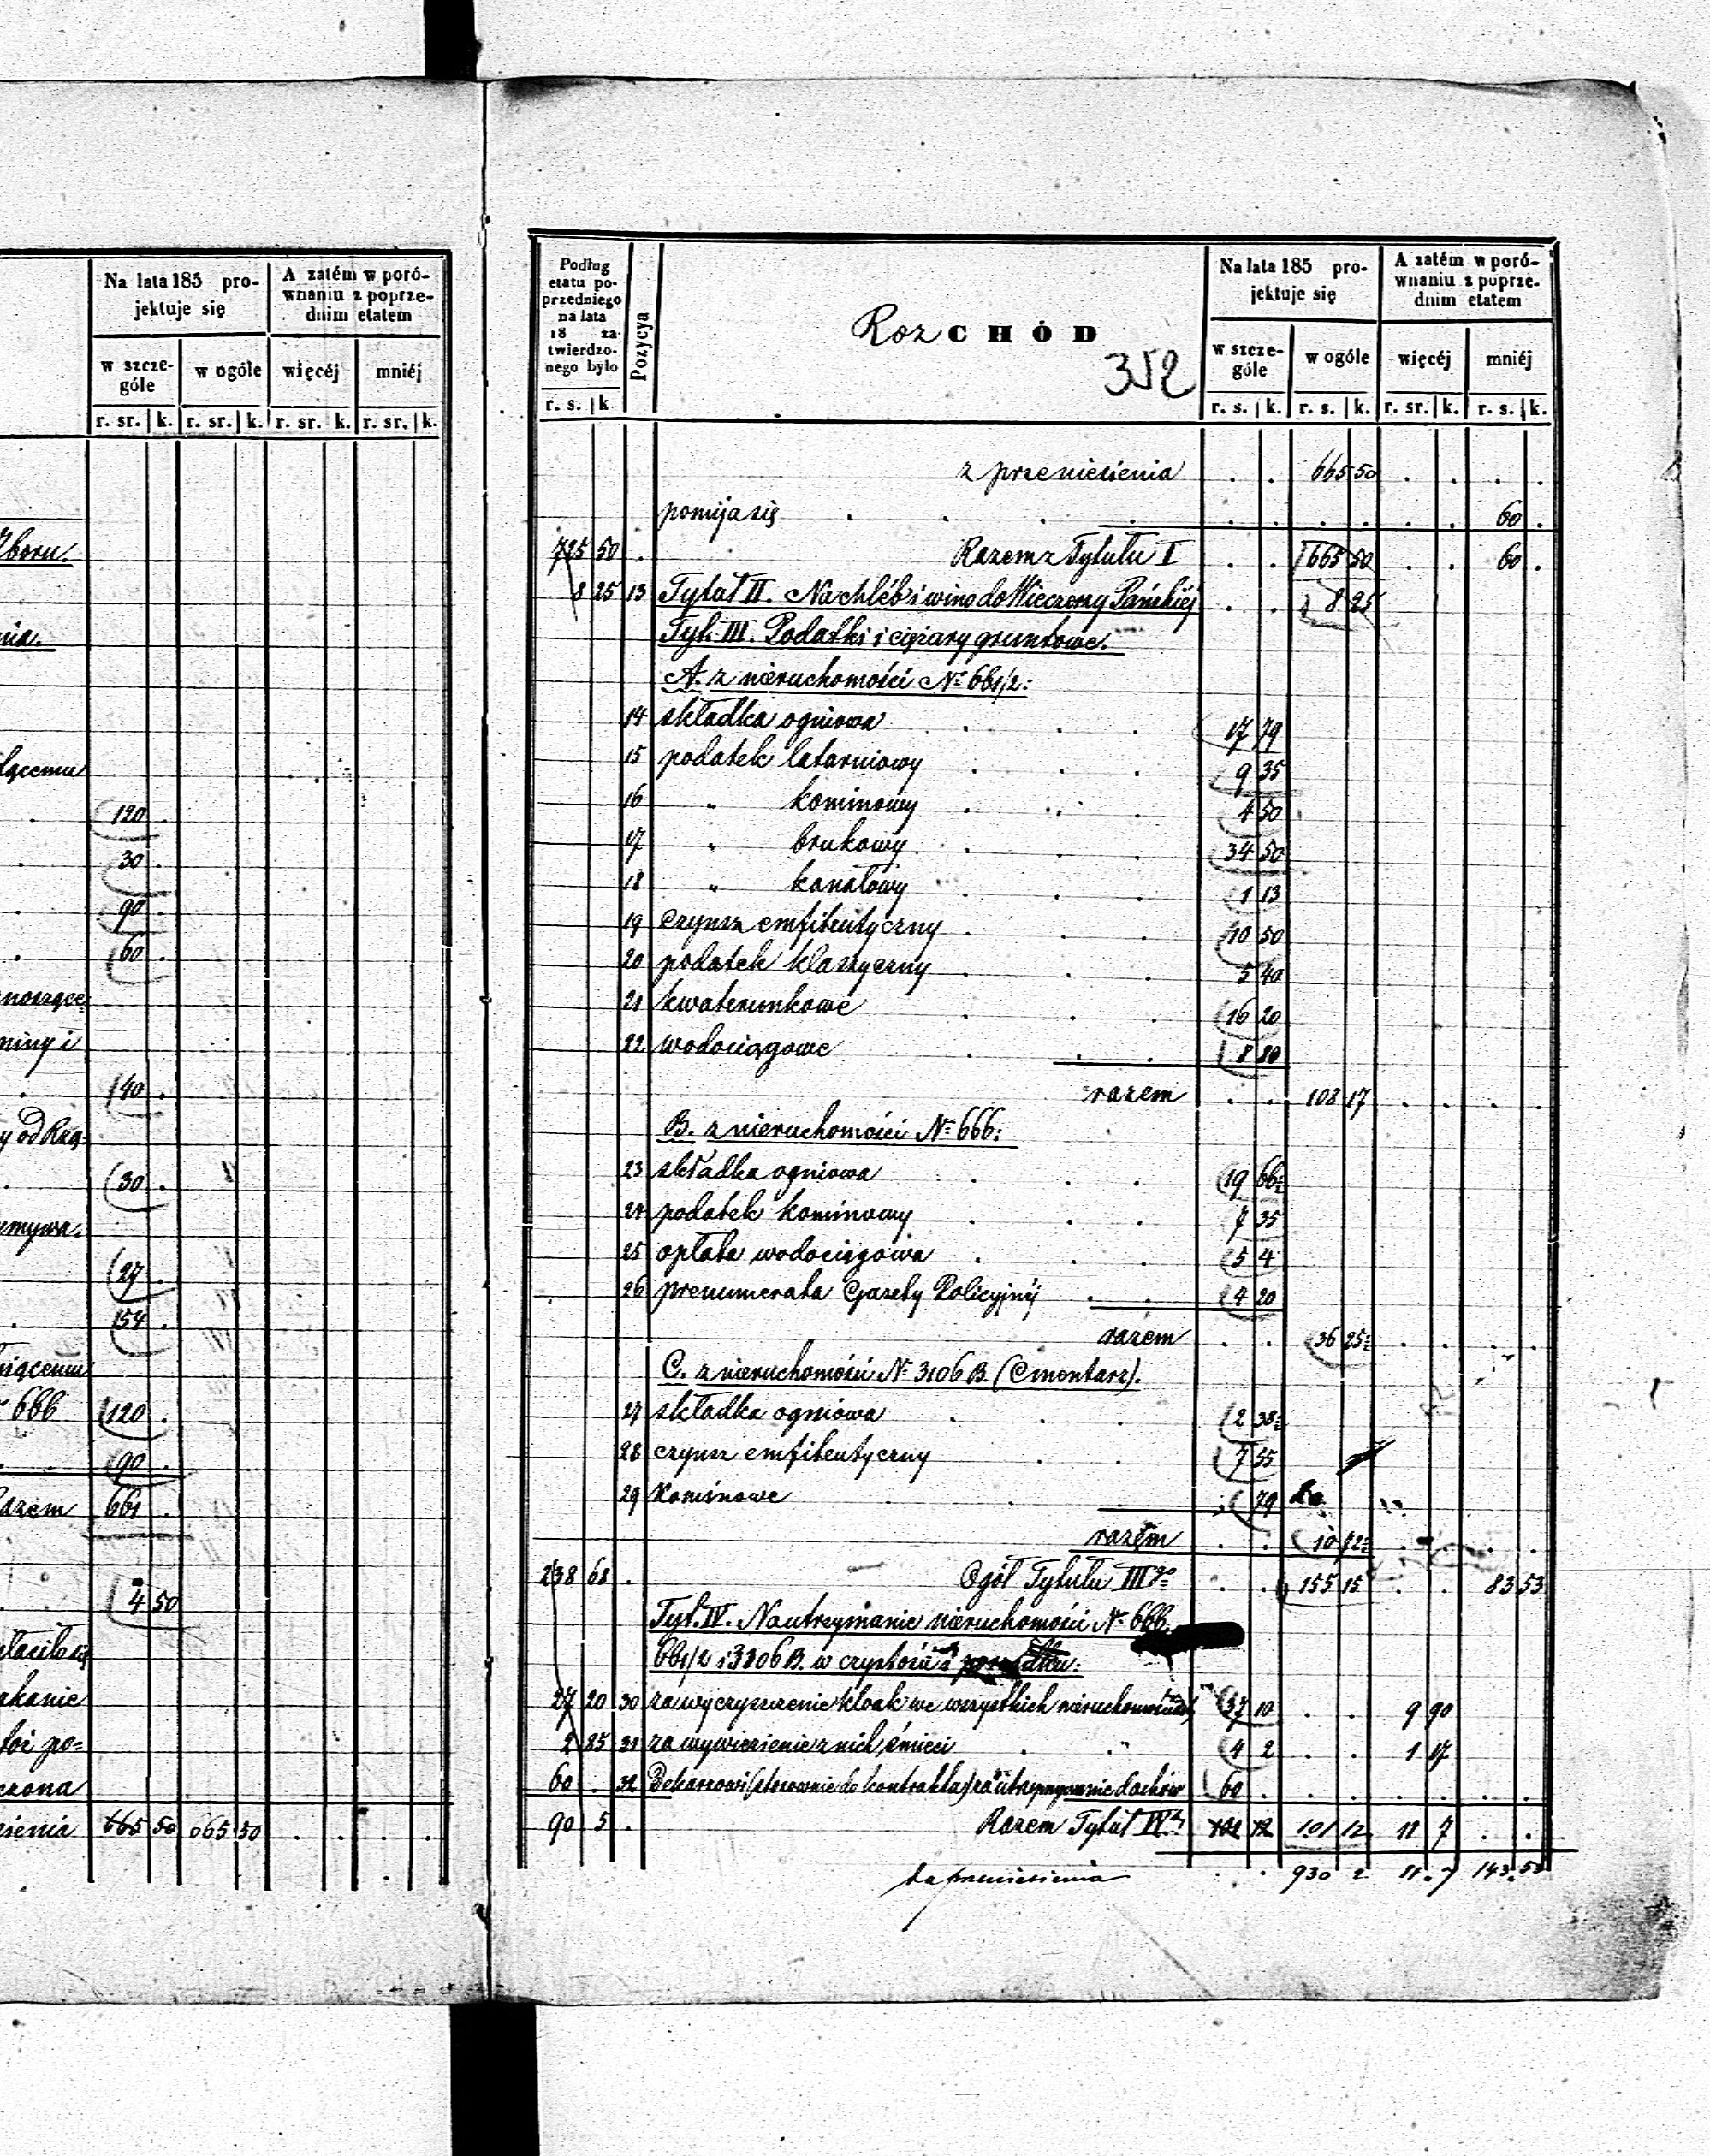 Na lata 185 pro-
jektuje się
A zatém w poró-
wnaniu z poprze-
dnim etatem
w szcze-
góle
w ogóle
więcéj
mniéj
r. sr. k. r. sr. k. r. sr. k. r. sr. k.
Zboru.
nia.
120 .
30 .
90 .
60 .
miny i
140 .
y od Rzą-
(30 .
27 .
154 .
666 120 .
90 .
Razem 661 .
4 50
akanie
665 50 665 50 . . . .
Podług
etatu po-
przedniego
na lata
18 za-
twierdzo-
nego było
Pozycya
RozCHÓD
352
Na lata 185 pro-
jektuje się
A zatém w poró-
wnaniu z poprze-
dnim etatem
w szcze-
góle
w ogóle
więcéj
mniéj
r. s. k. r. s. k. r. s. k. r. sr. k. r. s. k.
z przeniesienia . . 665 50 . . . .
pomija się . . . . . . . . . . 60 .
725 50 . Razem z Tytułu I . . 665 50 . . 60 .
8 25 13 Tytuł II. Na chléb i wino do Wieczerzy Pańskiéj . . 8 25
Tyt. III. Podatki i ciężary gruntowe.
A. z nieruchomości No 661/2:
14 składka ogniowa . . . 17 79
15 podatek latarniowy . . . 9 35
16 " kominowy . . . 4 50
17 " brukowy . . . 34 50
18 " kanałowy . . . 1 13
19 Czynsz emfiteutyczny . . . 10 50
20 podatek klaszyczny . . . 5 40
21 kwaterunkowe . . 16 20
22 wodociągowe . . . 8 80
razem . . 108 17 . . . .
B. z nieruchomości No 666:
23 składka ogniowa . . . 19 66
24 podatek kominowy . . . 7 35
25 opłata wodociągowa . . . 5 4
26 prenumerata Gazety Policyjnéj . . 4 20
razem . . 36 25 . . . .
C. z nieruchomości No 3106 B. (Cmentarz).
27 składka ogniowa . . . 2 38
28 czynsz emfiteutyczny . . 7 55
29 Kominowe . . 79
razem . . 10 72 . . . .
238 68 . Ogół Tytułu IIIgo . . 155 15 . . 83 53
Tyt. IV. Na utrzymanie nieruchomości No 666.
661/2 i 3106 B. w czystości i porządku:
27 20 30 za wyczyszczenie kloak we wszystkich nieruchomościach 37 10 . . 9 90
2 85 31 za wywiezienie z nich śmieci . . 4 2 . . 1 17
60 . 32 Dekarzowi (stosownie do kontraktu) za utrzymywanie dachów 60 . . . . . . .
90 5 . Razem Tytuł IV 101 12 101 12 11 7 . .
do przeniesienia . . 930 2 11 . 7 143 . 53